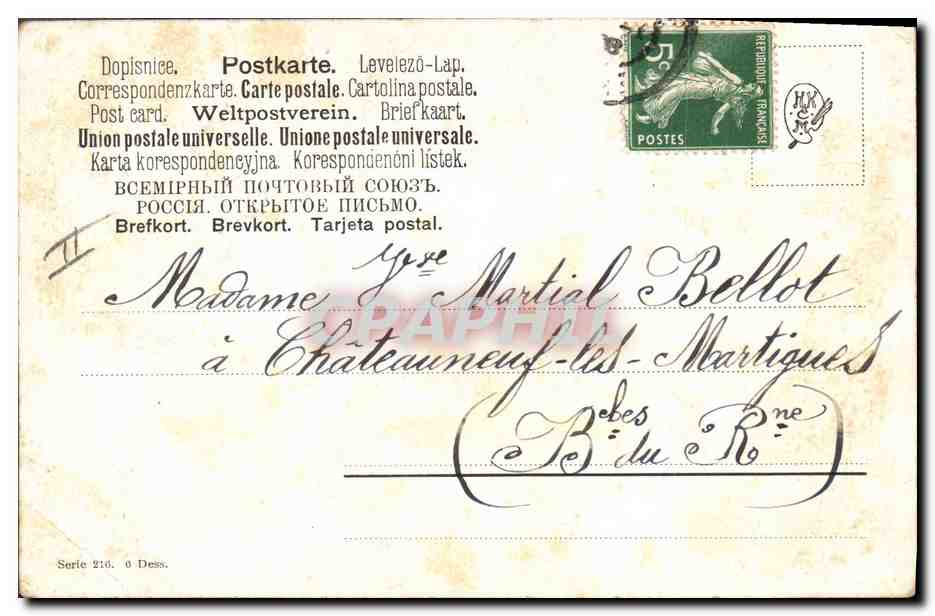 Dopisnice. Postkarte. Levelező-Lap.
Correspondenzkarte. Carte postale. Cartolina postale.
Post card. Weltpostverein. Briefkaart.
Union postale universelle. Unione postale universale.
Karta korespondencyjna. Korespondenční lístek.
ВСЕМІРНЫЙ ПОЧТОВЫЙ СОЮЗЪ.
РОССІЯ. ОТКРЫТОЕ ПИСЬМО.
Brefkort. Brevkort. Tarjeta postal.
5c
REPUBLIQUE FRANÇAISE
POSTES
H.K.
&
C.M.
II
Madame Vve Martial Bellot
à Châteauneuf-les-Martigues
(Bches du Rne)
CPAPHIL
Serie 216. 6 Dess.